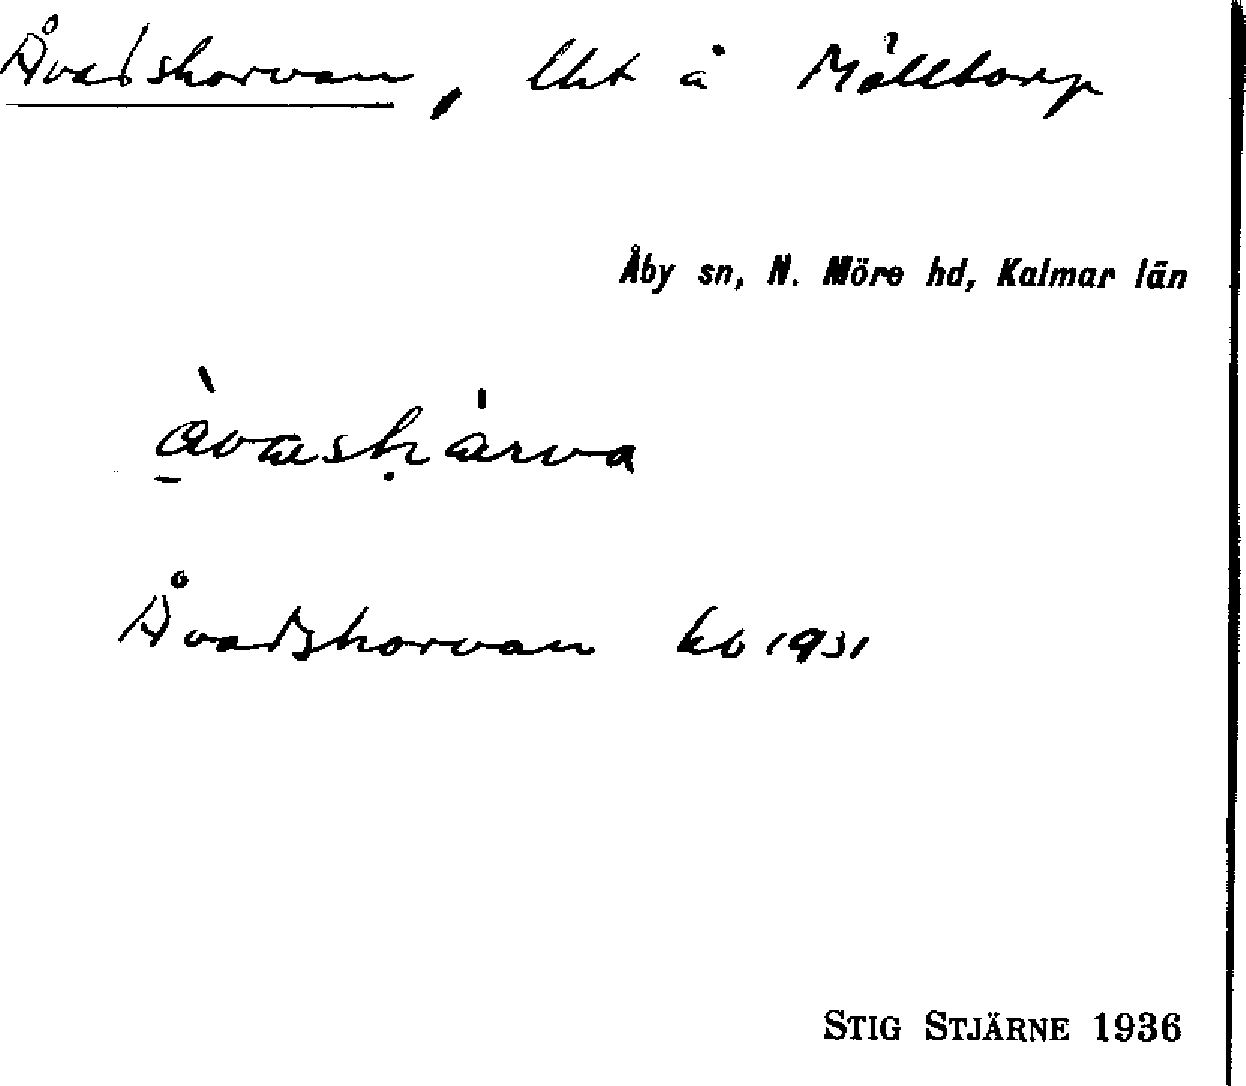 Åvadskorvan, lht å Målltorp
Åby sn, N. Möre hd, Kalmar län
Åvadskorvan kb 1931
STIG STJÄRNE 1936